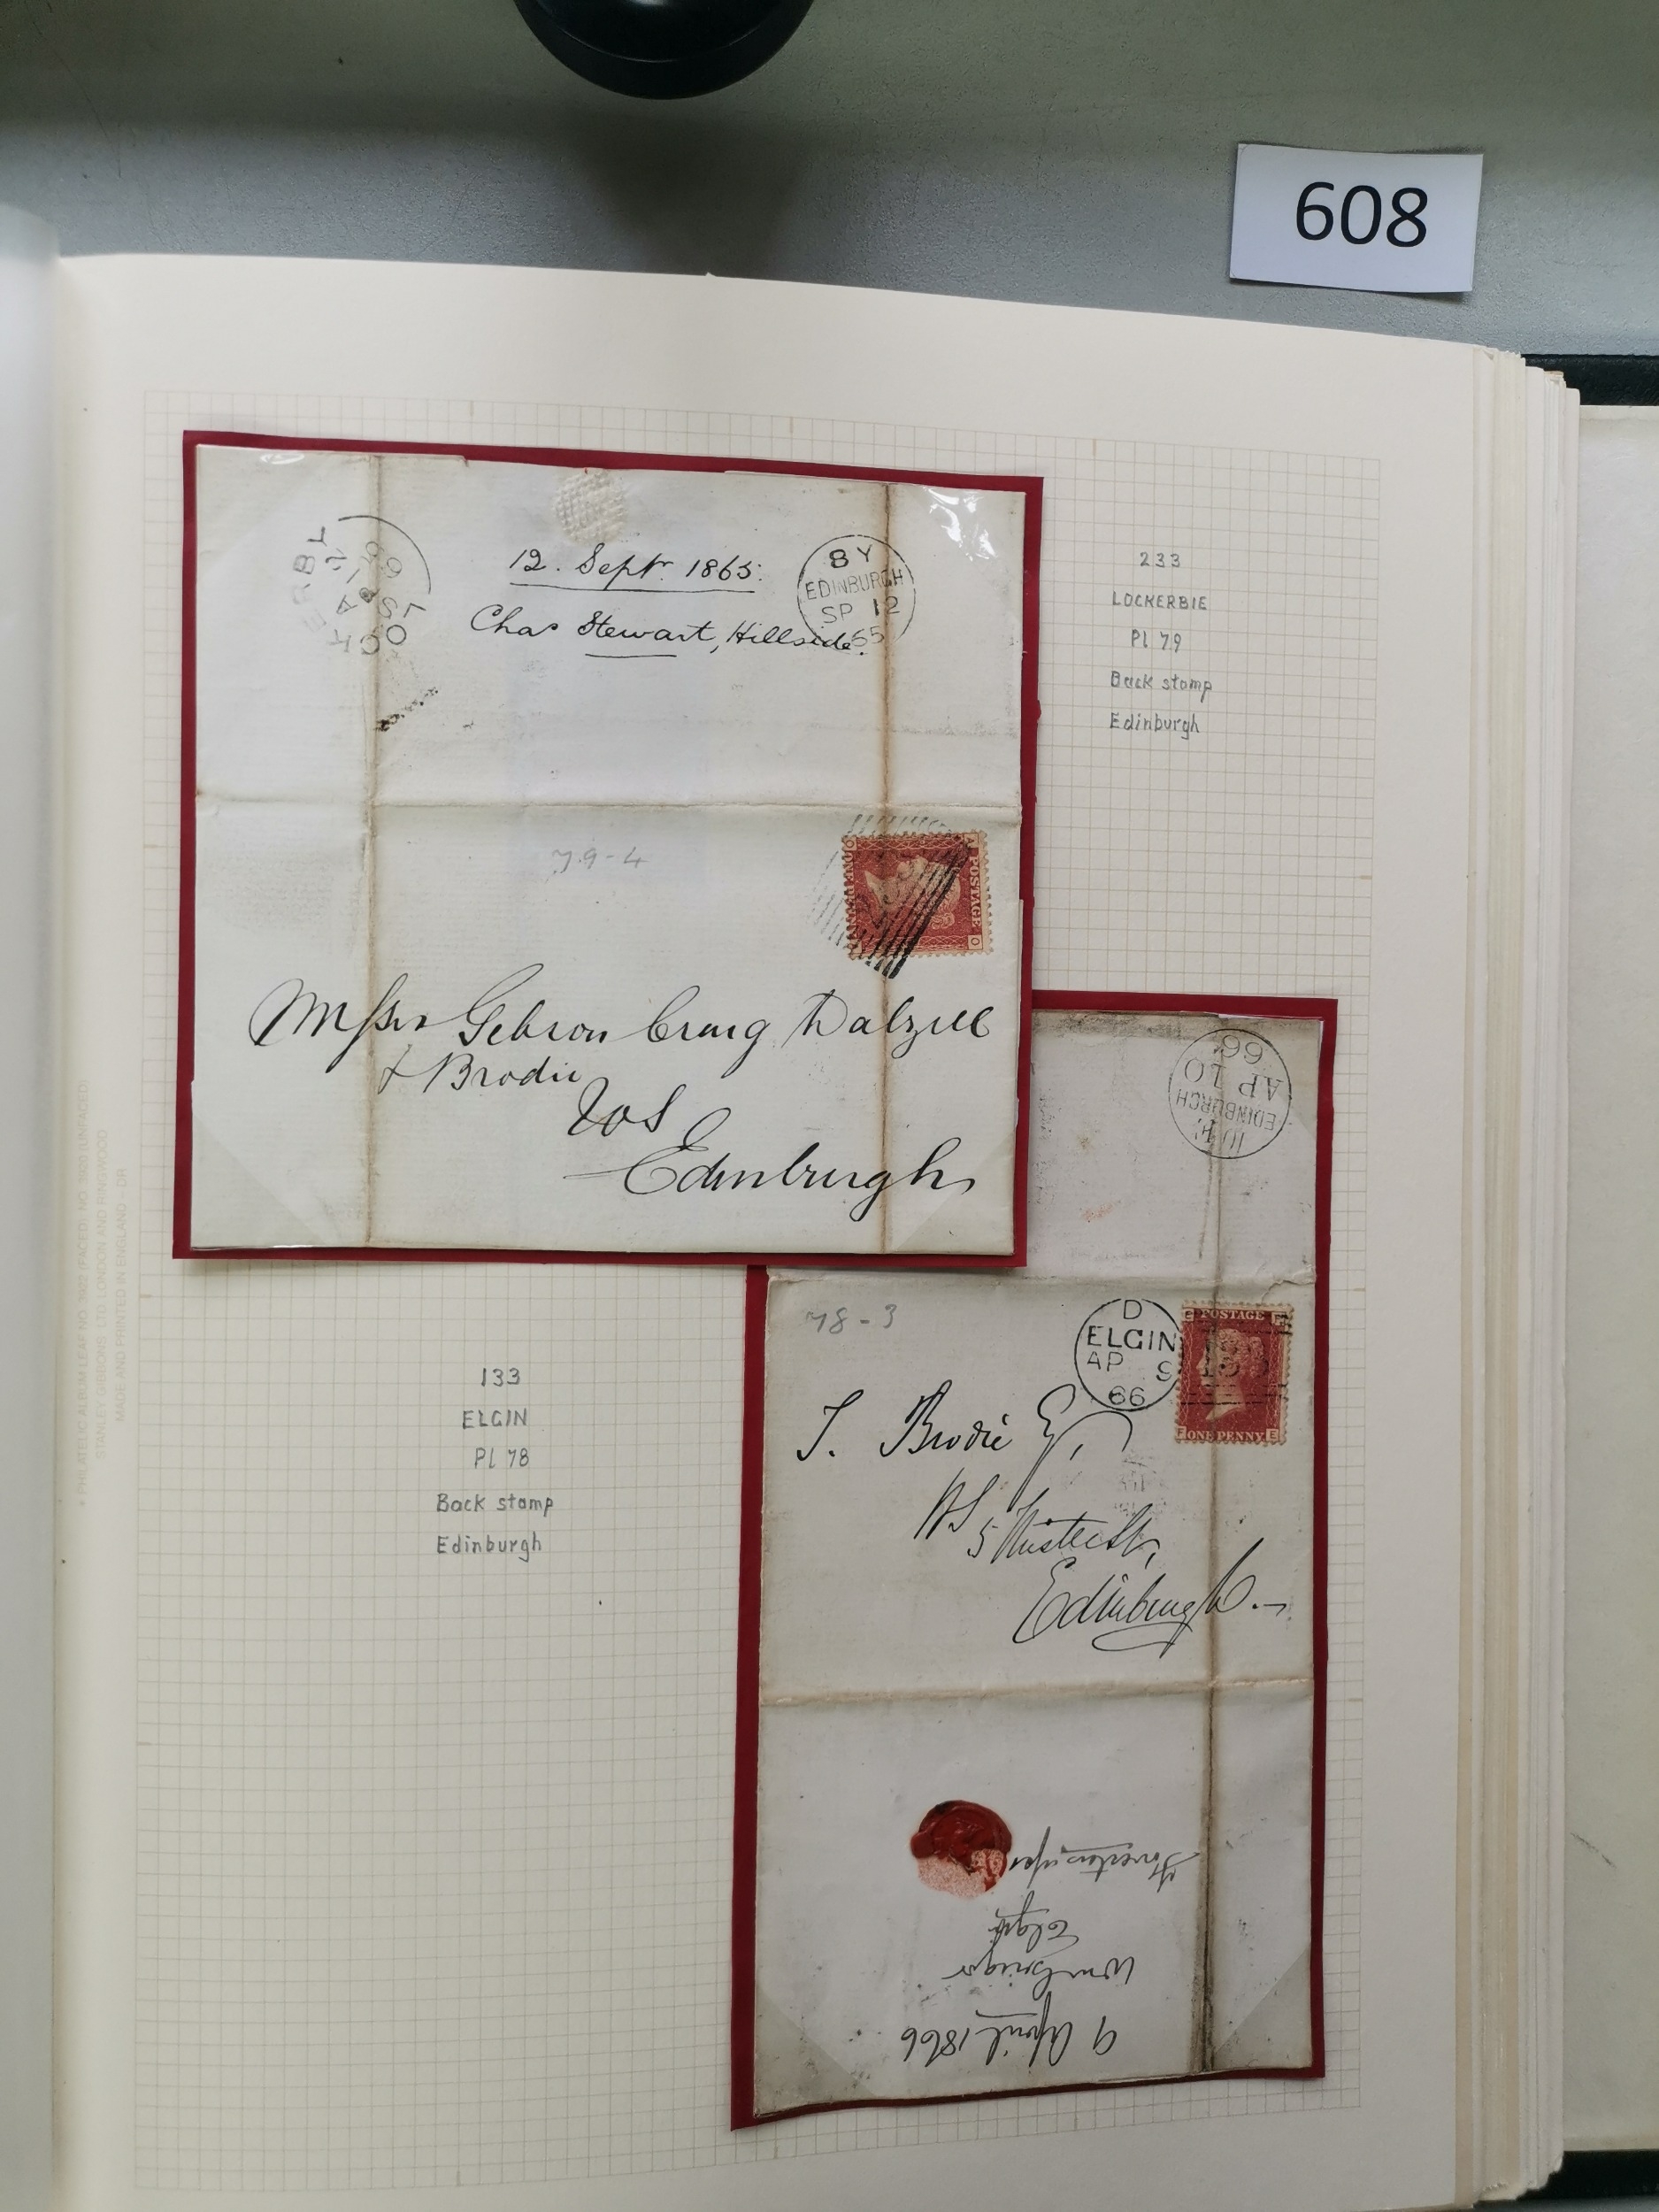 608
12. Sept. 1865.
Chas Stewart, Hillside.
LOCKERBY
A
SP 12
65
8 Y
EDINBURGH
SP 12
65
233
LOCKERBIE
Pl 79
Back stamp
Edinburgh
79-4
A POSTAGE O
Messrs Gibson Craig Dalziel
& Brodie
WS
Edinburgh
EDINBURGH
AP 10
66
78-3
D
ELGIN
AP 9
66
E POSTAGE F
F ONE PENNY E
J. Brodie Esq,
WS
5 Thistle St,
Edinburgh.
133
ELGIN
Pl 78
Back stamp
Edinburgh
9 April 1866
Elgin
PHILATELIC ALBUM LEAF NO. 3922 (FACED). NO. 3920 (UNFACED)
STANLEY GIBBONS LTD. LONDON AND RINGWOOD
MADE AND PRINTED IN ENGLAND DR